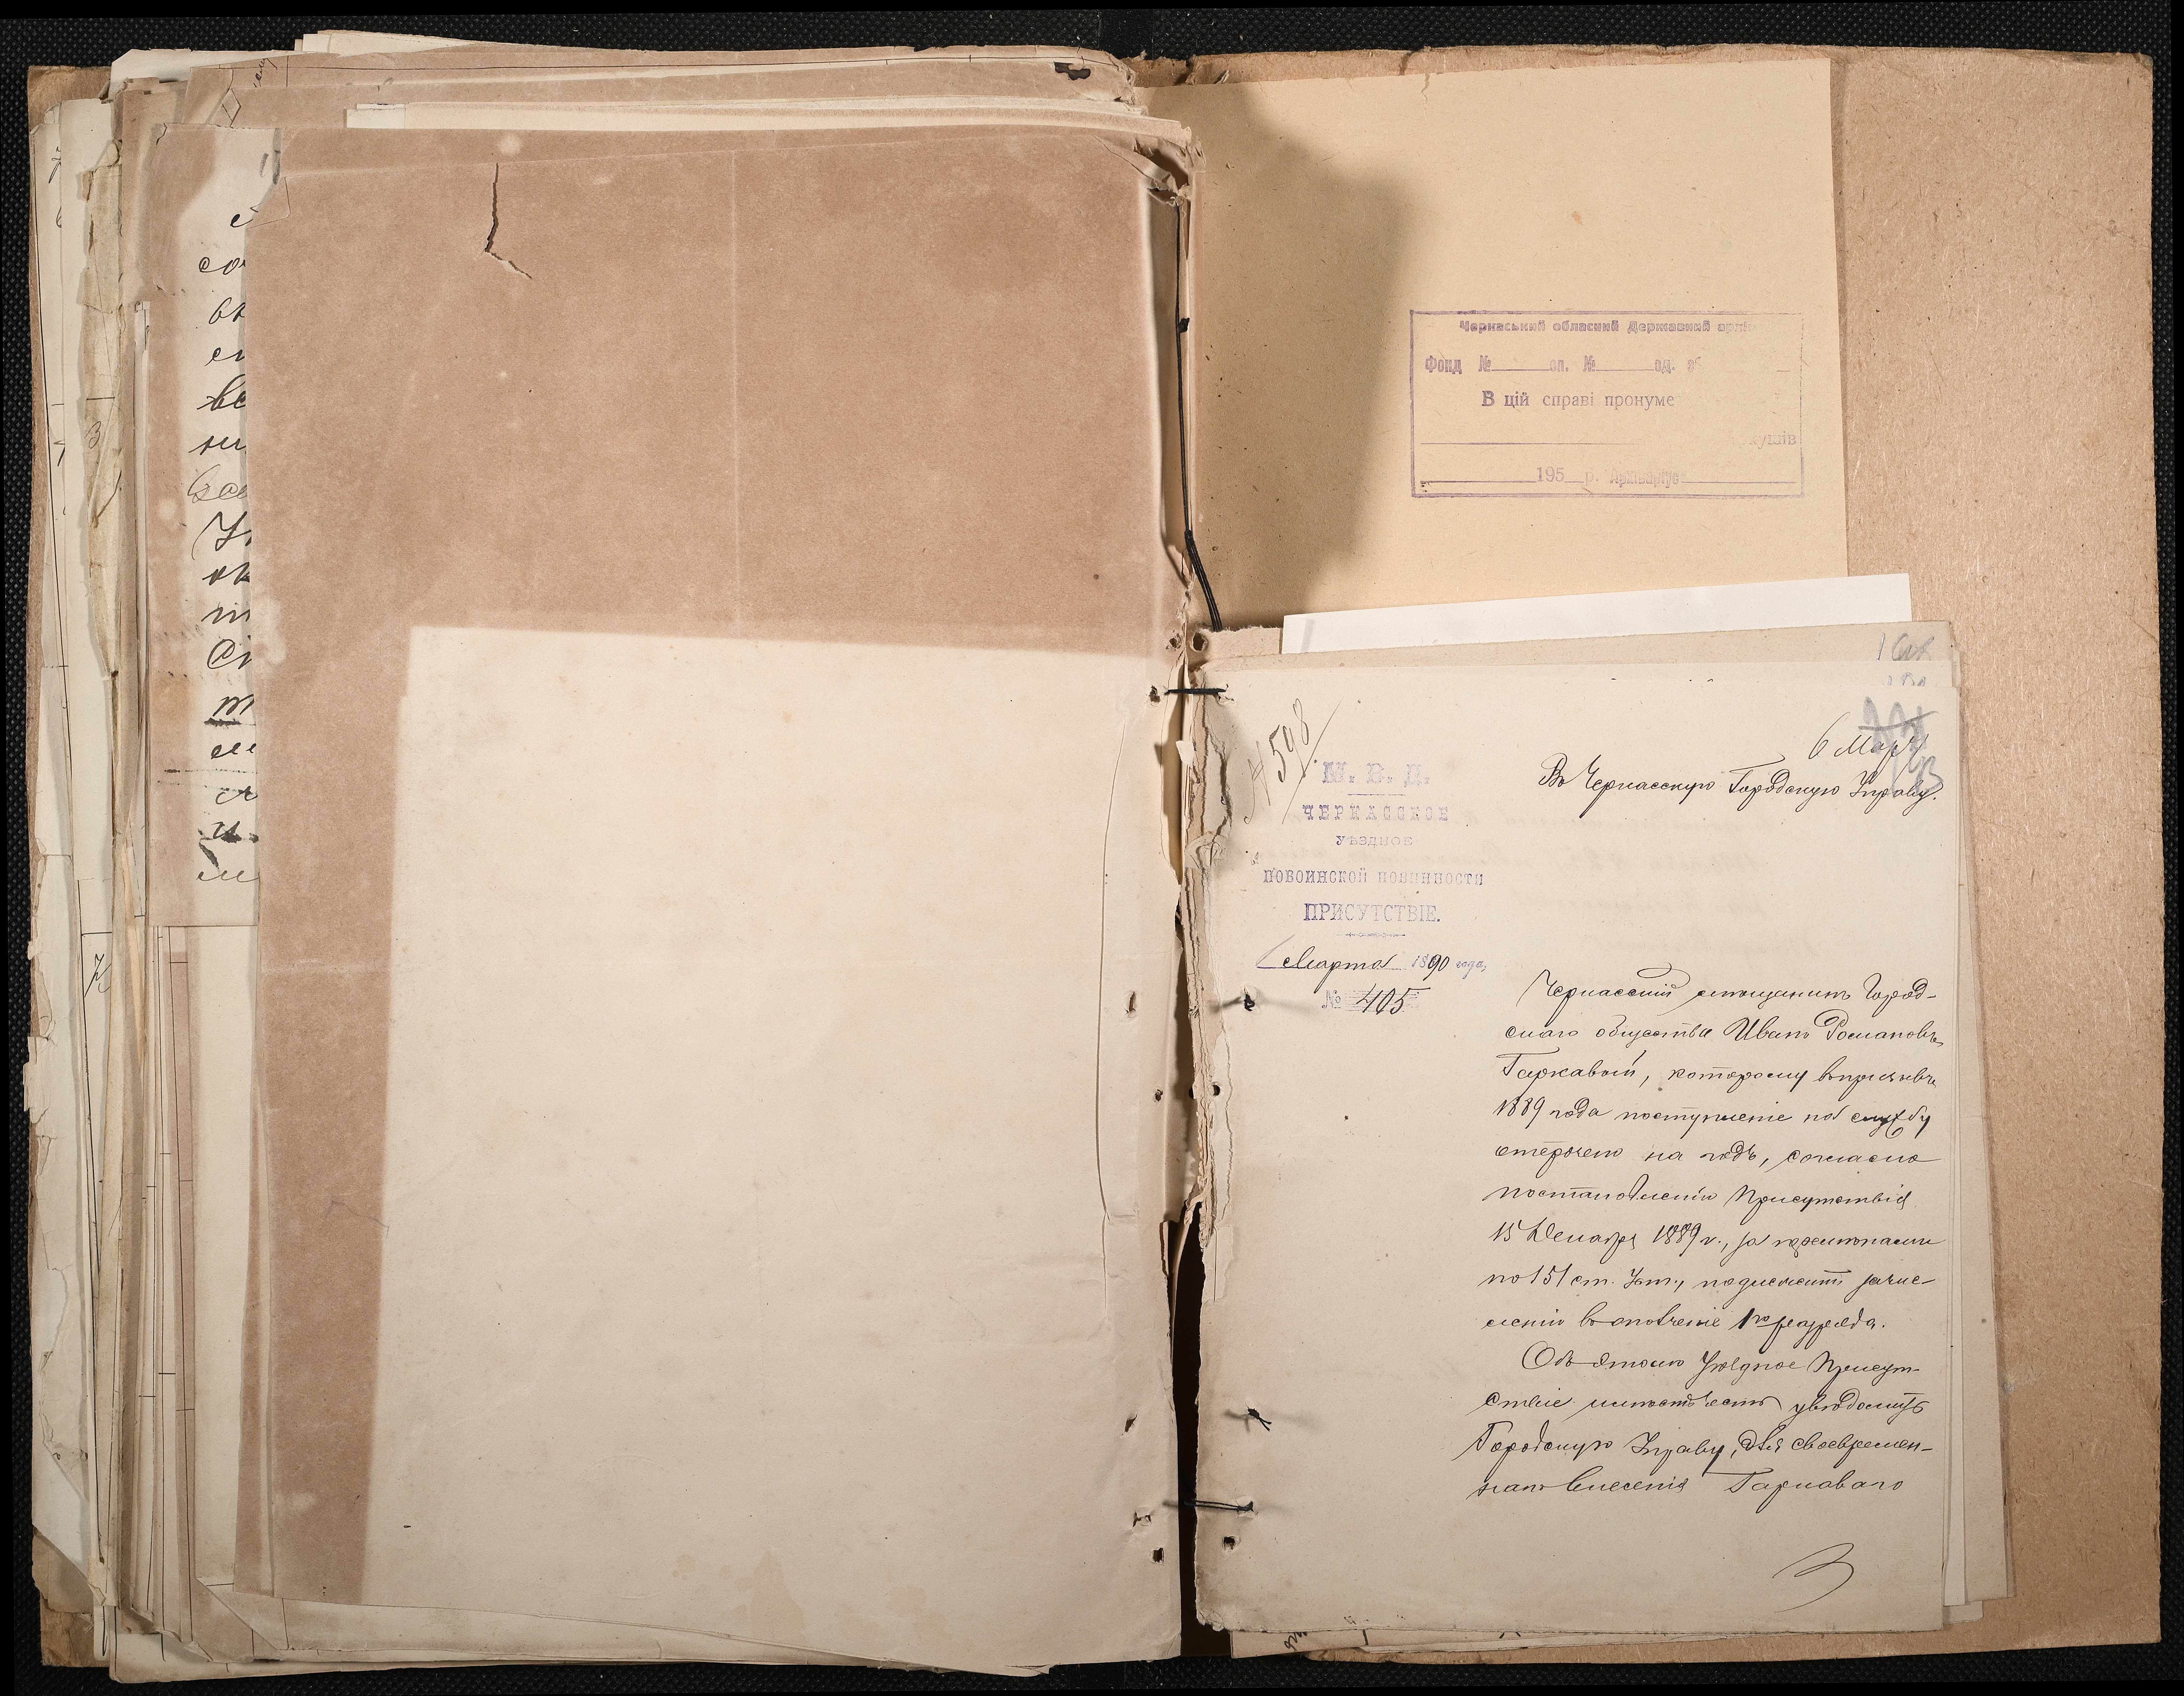 Черкаський обласний Державний архів
Фонд № оп. № од. зб
В цій справі пронуме
кушів
195 р. Архіваріус
6 Мар
№ 598
М. В. Д.
ЧЕРКАССКОЕ
УѢЗДНОЕ
ПОВОИНСКОЙ ПОВИННОСТИ
ПРИСУТСТВІЕ.
Марта 1890 года,
№ 405
Въ Черкасскую Городскую Управу.
Черкасскій мѣщанинъ Город-
скаго общества Иванъ Романовъ
Гаркавый, которому въ призывѣ
1889 года поступленіе на службу
отсрочено на годъ, согласно
постановленію Присутствія
15 Декабря 1889 г., за
по 151 ст. Уст., подлежитъ зачис-
ленію въ ополченіе 1го разряда.
Объ этомъ Уѣздное Присут-
ствіе имѣетъ честь увѣдомить
Городскую Управу, для своевремен-
наго внесенія Гаркаваго